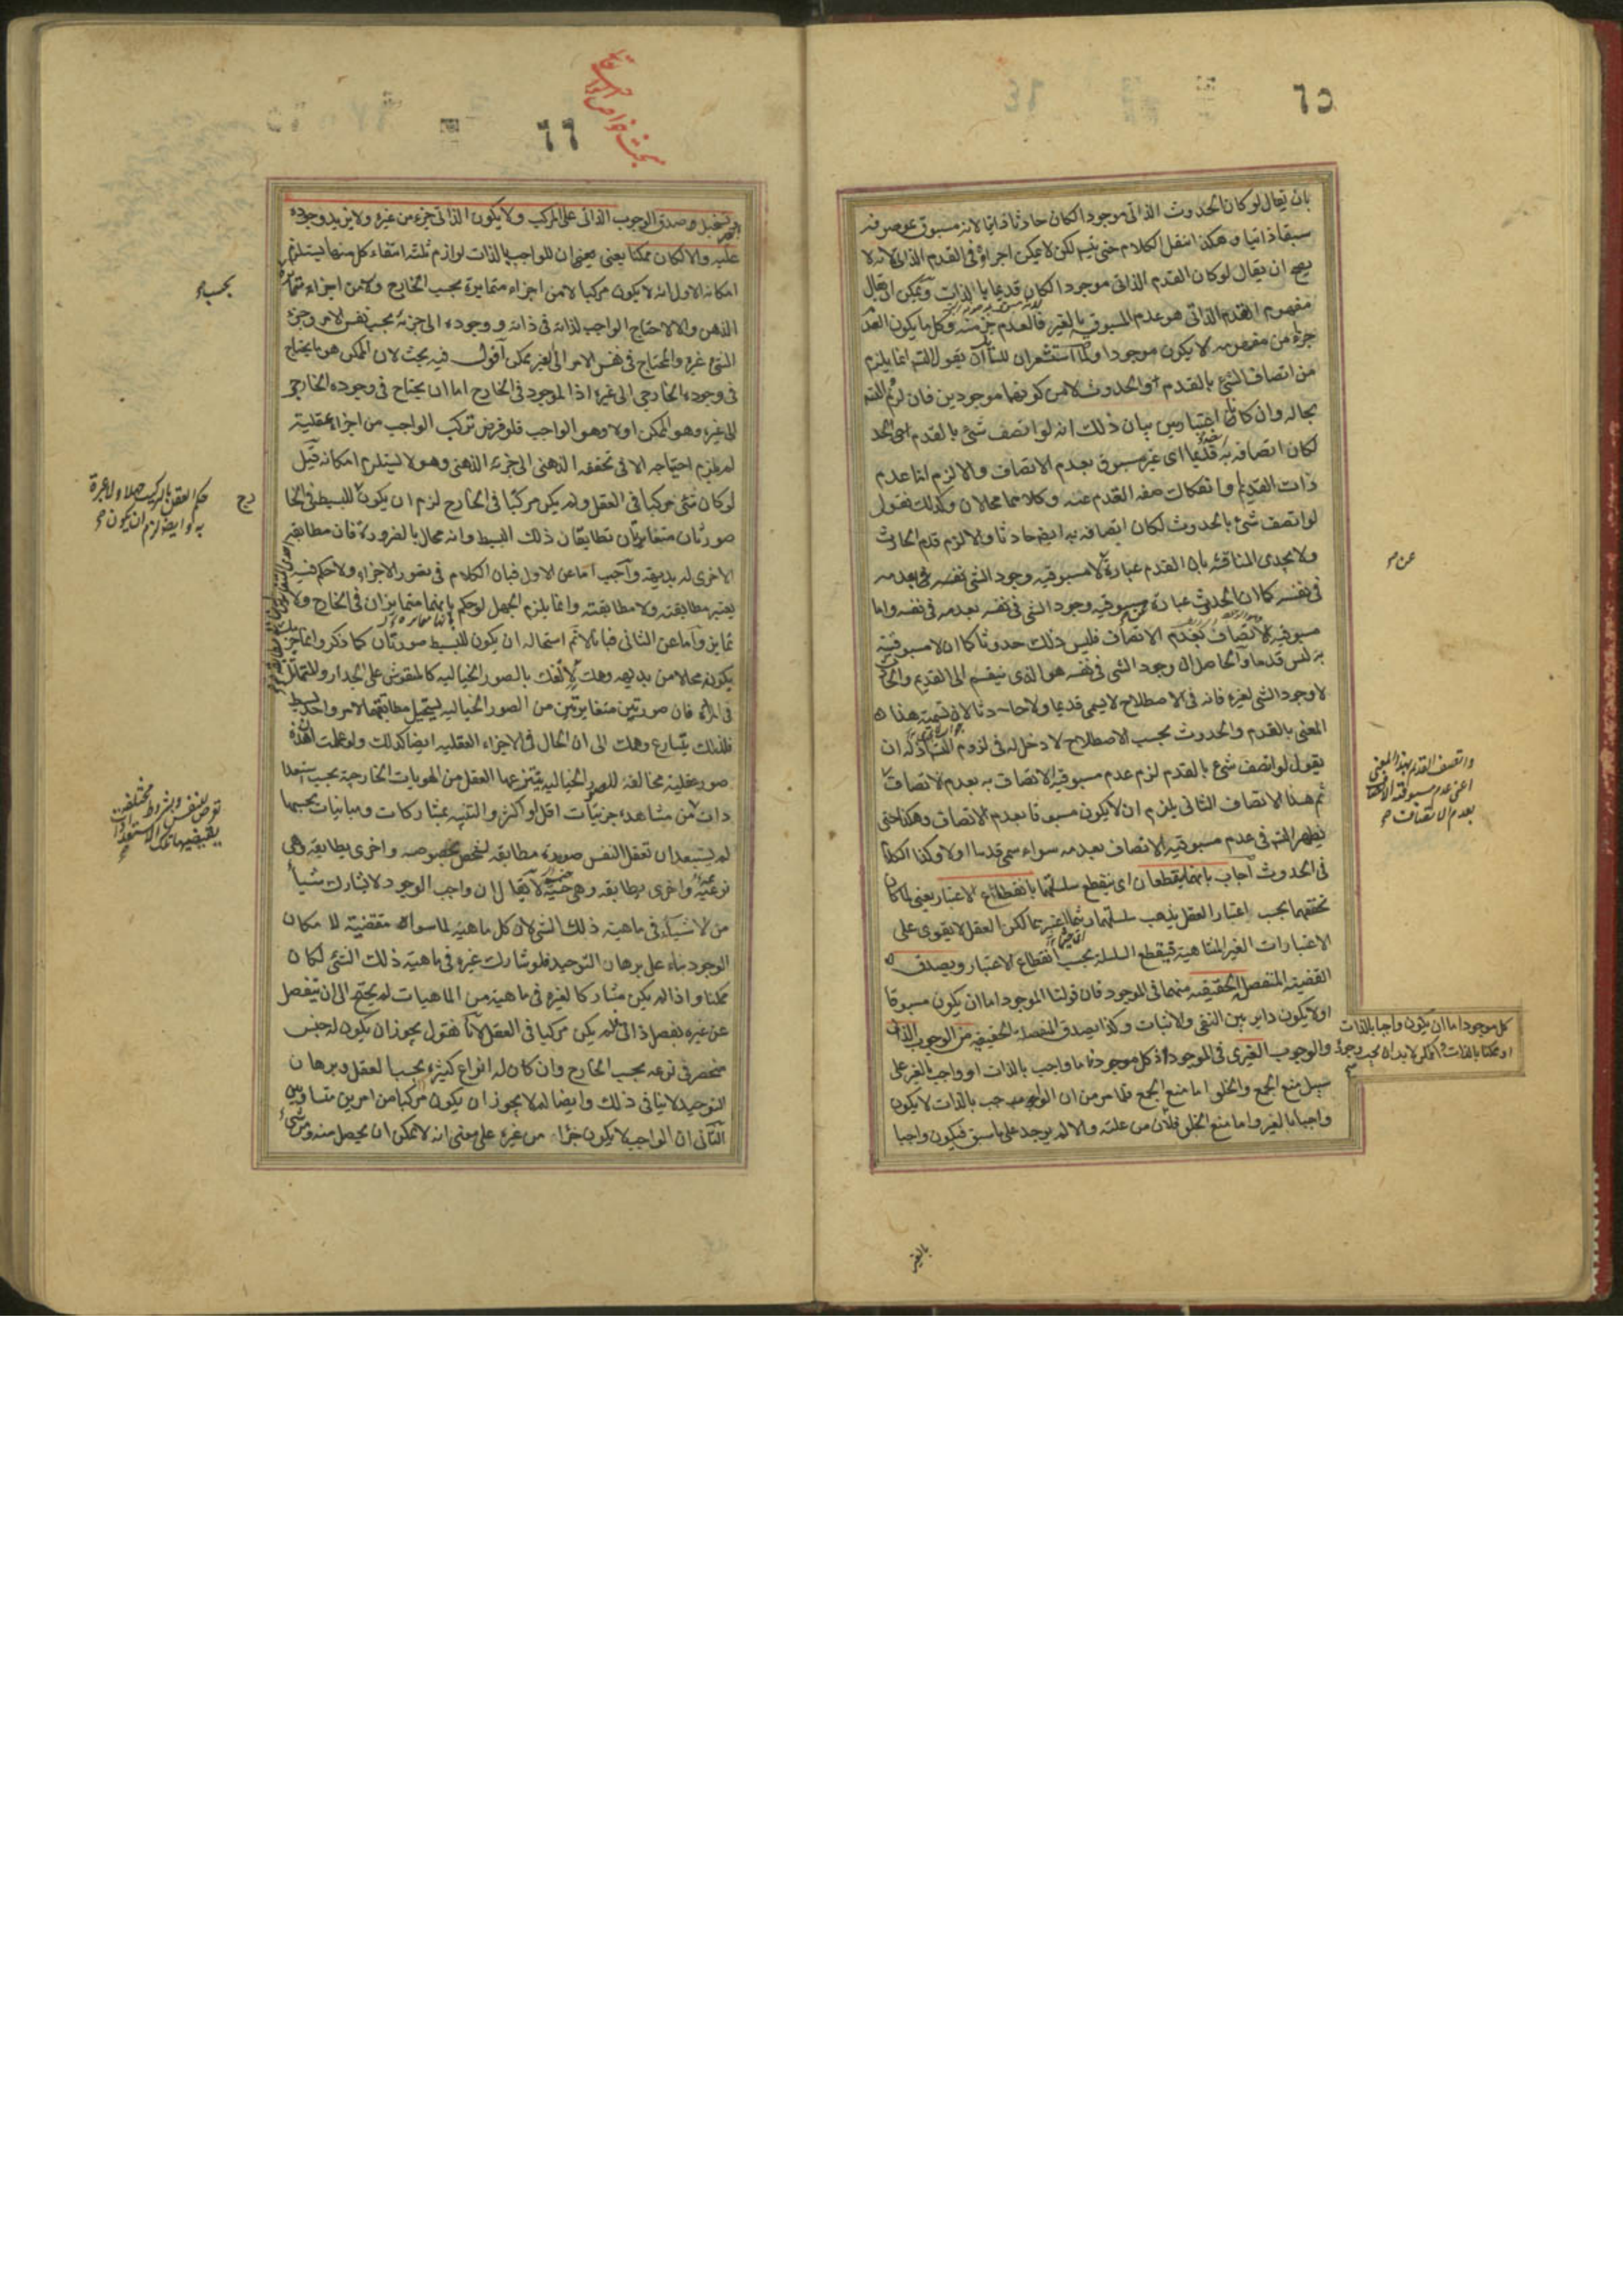 ٦٥
بان يقال لو كان الحدوث الذاتى موجودا لكان حادثا ذاتيا لانه مسبوق بموصوفه
سبقا ذاتيا وهكذا ننقل الكلام حتى يتم لكن لا يمكن اجراؤه فى القدم الذاتى لانه لا
يصح ان يقال لو كان القدم الذاتى موجودا لكان قديما بالذات ويمكن ان يقال
مفهوم القدم الذاتى هو عدم المسبوقية بالغير فالعدم جزء منه وكل ما يكون العدم
جزء من مفهومه لا يكون موجودا ولما استشعر ان للسائل ان يقول التسلسل انما يلزم
من اتصاف الشئ بالقدم والحدوث لا من كونهما موجودين فان لزم التسلسل
بحاله وان كانا اعتباريين بيان ذلك انه لو اتصف شئ بالقدم
لكان اتصافه به قديما اى غير مسبوق بعدم الاتصاف والا لزم اما عدم
ذات القديم او انفكاك صفة القدم عنه وكلاهما محالان وكذلك نقول
لو اتصف شئ بالحدوث لكان اتصافه به ايضا حادثا والا لزم قدم الحادث
ولا يجدى المناقشة بان القدم عبارة لا مسبوقيه وجود الشئ فى نفسه بعدمه
فى نفسه كما ان الحدوث عبارة عن مسبوقيه وجود الشئ فى نفسه بعدمه فى نفسه واما
مسبوقيه الاتصاف بعدم الاتصاف فليس ذلك حدوثا كما ان لا مسبوقيته
به ليس قدما والحاصل ان وجود الشئ فى نفسه هو الذى ينقسم الى القديم والحادث
لا وجود الشئ لغيره فانه فى الاصطلاح لا يسمى قديما ولا حادثا لان تسمية هذا
المعنى بالقدم والحدوث بحسب الاصطلاح لا دخل له فى لزوم التسلسل اذ له ان
يقول لو اتصف شئ بالقدم لزم عدم مسبوقيه الاتصاف به بعدم الاتصاف
ثم هذا الاتصاف الثانى يلزم ان لا يكون مسبوقا بعدم الاتصاف وهكذا حتى
يظهر التسلسل فى عدم مسبوقيه الاتصاف بعدمه سواء سمى قدما او لا وكذا الكلام
فى الحدوث اجاب بانهما ينقطعان اى ينقطع سلسلتهما بانقطاع الاعتبار يعنى لما كان
تحققهما بحسب اعتبار العقل يذهب سلسلتهما لكن العقل لا يقوى على
الاعتبارات الغير المتناهية فينقطع السلسلة بحسب انقطاع الاعتبار ويصدق
القضية المنفصلة الحقيقية منهما فى الموجود فان قولنا الموجود اما ان يكون مسبوقا
او لا يكون داير بين النفى والاثبات وكذا يصدق المنفصلة الحقيقية من الوجوب الذاتى
والوجوب الغيرى فى الموجود اذ كل موجود فاما واجب بالذات او واجب بالغير على
سبيل منع الجمع والخلو اما منع الجمع فلما مر من ان الواجب بالذات لا يكون
واجبا بالغير واما منع الخلو فلان من علته والا لم يوجد على ما سبق فيكون واجبا
عن
واتصف القدم بهذا المعنى
اعنى عدم مسبوقية الاتصاف
بعدم الاتصاف
كل موجود اما ان يكون واجبا بالذات
او ممكنا بالذات والممكن لا بد ان يجب وجوده
بالغير
٦٦
بحث خواص الواجب
ويستحيل صدق الوجوب الذاتى على المركب ولا يكون الذاتى جزء من غيره ولا يزيد وجوده
عليه والا لكان ممكنا يعنى ان للواجب بالذات لوازم ثلثة انتفاء كل منها يستلزم
امكانه الاول انه لا يكون مركبا لا من اجزاء متمايزة بحسب الخارج ولا من اجزاء متمايزة
الذهن والا لاحتاج الواجب لذاته فى ذاته ووجوده الى جزئه بحسب نفس الامر وجزء
الشئ غيره والمحتاج فى نفس الامر الى الغير ممكن اقول فيه بحث لان الممكن هو ما يحتاج
فى وجوده الخارجى الى غيره اذ الموجود فى الخارج اما ان يحتاج فى وجوده الخارجى
الى غيره وهو الممكن او لا وهو الواجب فلو فرض تركب الواجب من اجزاء عقلية
لم يلزم احتياجه الا فى تحققه الذهنى الى جزئه الذهنى وهو لا يستلزم امكانه قيل
لو كان شئ مركبا فى العقل ولم يكن مركبا فى الخارج لزم ان يكون للبسيط فى الخارج
صورتان متغايرتان تطابقان ذلك البسيط وانه محال بالضرورة فان مطابقة
الاخرى له بديهة واجيب اما عن الاول فبان الكلام فى تصور الاجزاء ولا حكم فيه
يعتبر مطابقته ولا مطابقته وانما يلزم الجهل لو حكم بانهما متمايزان فى الخارج ولا
تمايز واما عن الثانى فبانا لا نم استحالة ان يكون للبسيط صورتان كما ذكر وانما
يكون محالا من بديهة وهمك لالفك بالصور الخيالية كالمنقوش على الجدار والتماثيل
فى المرآة فان صورتين متغايرتين من الصور الخيالية يستحيل مطابقتهما لامر واحد بسيط
فلذلك يتسارع وهمك الى ان الحال فى الاجزاء العقلية ايضا كذلك ولو علمت ان هذه
صور عقلية مخالفة للصور الخيالية ينتزعها العقل من الهويات الخارجية بحسب استعدا
دات من مشاهدة جزئيات اقل او اكثر والتنبه بمشاركات ومباينات بحسبها
لم يستبعد ان تعقل النفس صورة مطابقة لشخص بخصوصه واخرى يطابقه وهى
نوعية واخرى يطابقه وهى جنسية لا يقال ان واجب الوجود لا يشارك شيأ
من الاشياء فى ماهية ذلك الشئ لان كل ماهية لما سواه مقتضية للامكان
الوجود بناء على برهان التوحيد فلو شارك غيره فى ماهية ذلك الشئ لكان
ممكنا واذا لم يكن مشاركا لغيره فى ماهية من الماهيات لم يحتج الى ان ينفصل
عن غيره بفصل ذاتى فلم يكن مركبا فى العقل لانا نقول يجوز ان يكون له جنس
منحصر فى نوعه بحسب الخارج وان كان له انواع كثيرة بحسب العقل وبرهان
التوحيد لا ينافى ذلك وايضا لم لا يجوز ان يكون مركبا من امرين متساويين
الثانى ان الواجب لا يكون جزءا من غيره على معنى انه لا يمكن ان يحصل منه ومن شئ
بحسب
حكم العقل بالتركيب
به وايضا لزم ان يكون
تعرض للنفس وبشروط مختلفة
يقتضيها تلك الاستعدادات